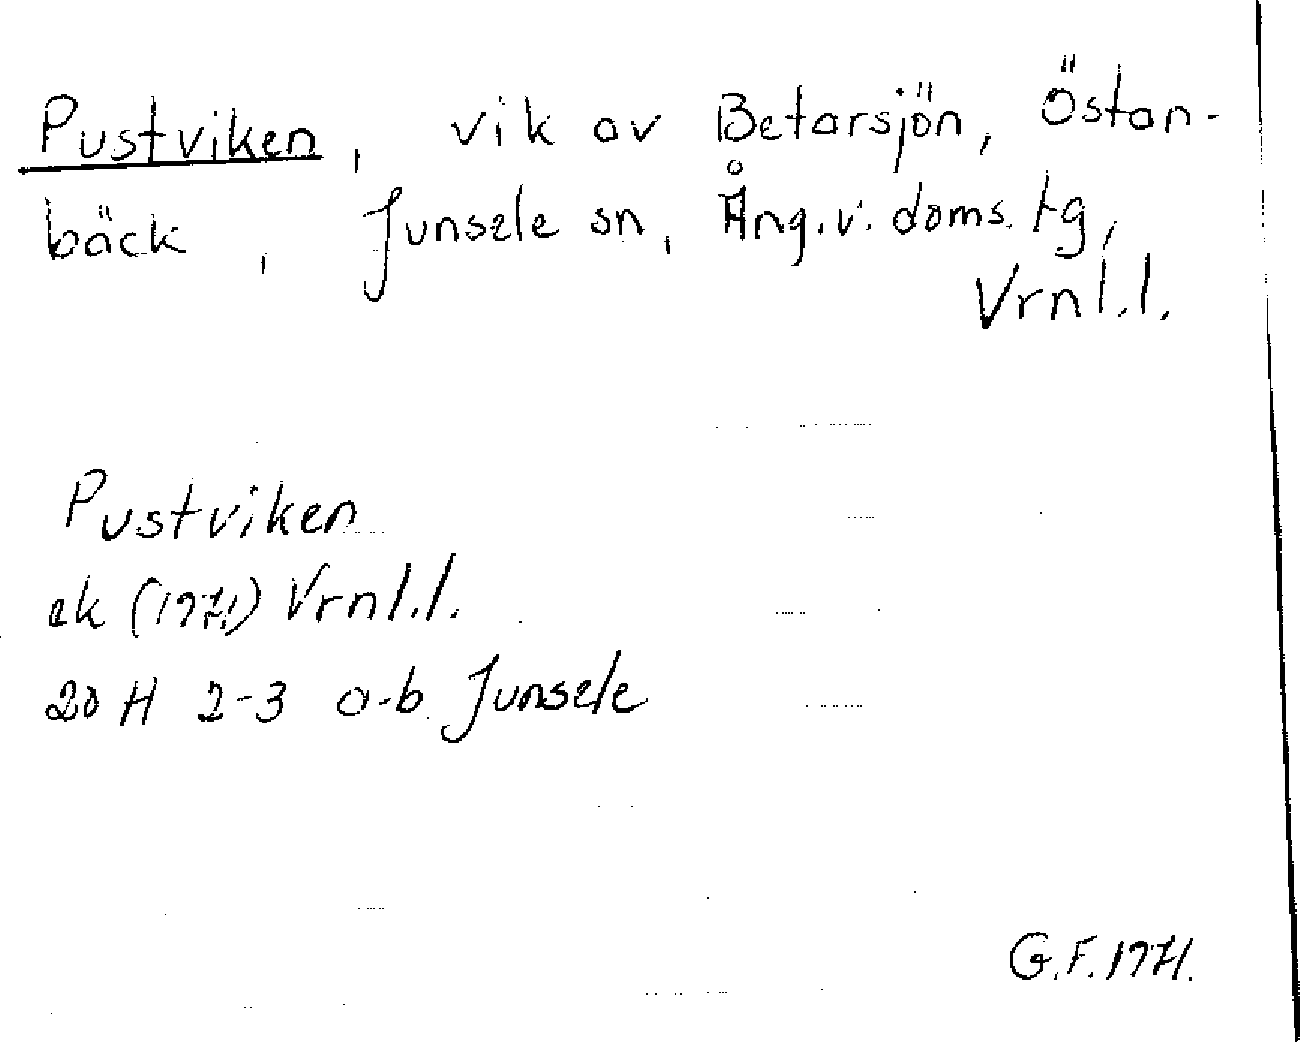 Pustviken, vik av Betarsjön, Östan-
bäck, Junsele sn, Ång.v. doms. tg,
Vrnl.l.
Pustviken
ek (1971) Vrnl.l.
20 H 2-3 a-b Junsele
G.F. 1971.